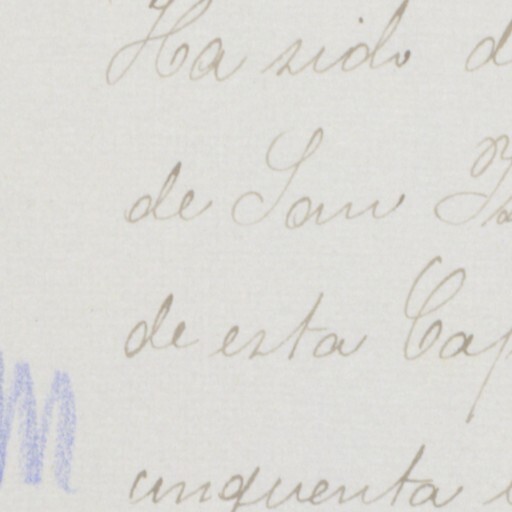 Ha sido
de San
de esta
cinquenta